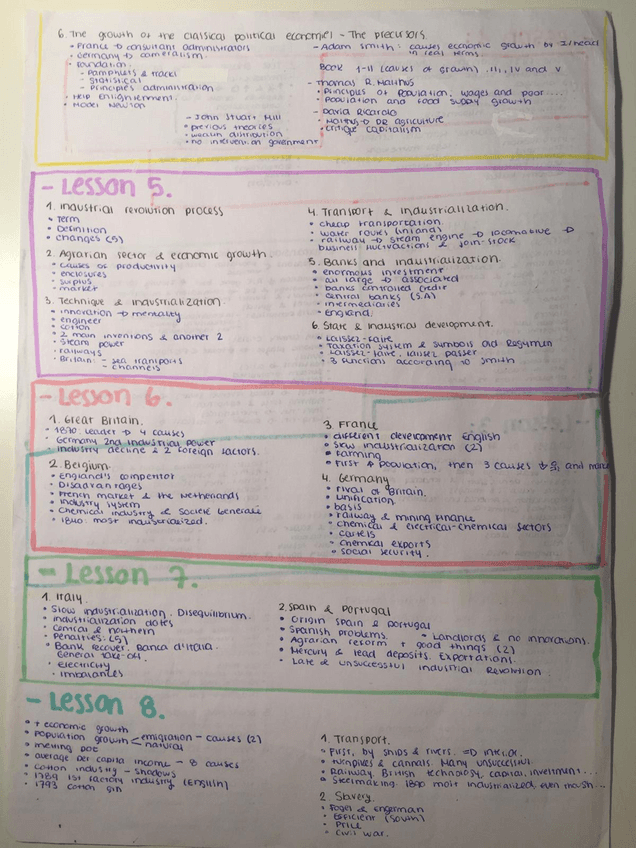 6. The growth of the classical political economic! - The precursors
• France → consultant administrators
• Germany → cameralism.
• Foundation:
- Pamphlets & tracts
- Statistical
- Principles administration
• Help Enlightenment.
• Model Newton
- John Stuart Mill
• previous theories
• wealth distribution
• no intervention government
- Adam Smith: causes economic growth by I/head
in real terms
Book I-II (causes of growth). III, IV and V
- Thomas R. Malthus
• Principles of Population, wages and poor....
• Population and food supply growth
- David Ricardo
• Malthus → DR agriculture
• critique capitalism
- Lesson 5.
1. Industrial revolution process
• Term
• Definition
• Changes (5)
2. Agrarian sector & economic growth.
• causes of productivity
• enclosures
• surplus
• market
3. Technique & industrialization.
• innovation → mentality
• engineer
• cotton
• 2 main inventions & another 2
• steam power
• railways
• Britain: - sea transports
- channels
4. Transport & industrialization.
• cheap transportation.
• water routes (inland)
• railway → steam engine → locomotive →
business fluctuations & join-stock
5. Banks and industrialization.
• enormous investment
• all large → associated
• banks controlled credit
• central banks (S.A)
• intermediaries
• England.
6. State & industrial development.
• Laissez-faire
• Taxation system & symbols old Regimen
• Laissez-faire, laissez passer
• 3 functions according to Smith
- Lesson 6.
1. Great Britain.
• 1870 leader → 4 causes
• Germany 2nd industrial power
• industry decline & 2 foreign factors.
2. Belgium.
• England's competitor
• Disadvantages
• French market & the Netherlands
• Industry system
• Chemical industry & Societé Generale
• 1840: most industrialized.
3. France
• different development English
• Slow industrialization (2)
• Farming
• First population, then 3 causes and more
4. Germany
• rival of Britain.
• unification.
• basis
• railway & mining finance
• chemical & electrical-chemical sectors
• cartels
• chemical exports
• social security.
- Lesson 7.
1. Italy.
• Slow industrialization. Disequilibrium.
• industrialization dates
• Central & northern
• Penalties: (5)
• Bank recover. Banca d'Italia.
General take-off.
• electricity
• imbalances
2. Spain & Portugal
• Origin Spain & Portugal
• Spanish problems. • Landlords & no innovations.
• Agrarian reform + good things (2)
• Mercury & lead deposits. Exportations.
• Late & unsuccessful Industrial Revolution
- Lesson 8.
• + economic growth
• population growth < emigration - causes (2)
natural
• melting pot
• average per capita income - 8 causes
• cotton industry - shadows
• 1789 1st factory industry (English)
• 1793 cotton gin
1. Transport.
• First, by ships & rivers. → D interior.
• turnpikes & cannals. Many unsuccessful.
• Railway. British technology, capital, investment...
• Steelmaking. 1890 most industrialized, even though...
2. Slavery.
• Fogel & Engerman
• Efficient (South)
• Price
• Civil war.